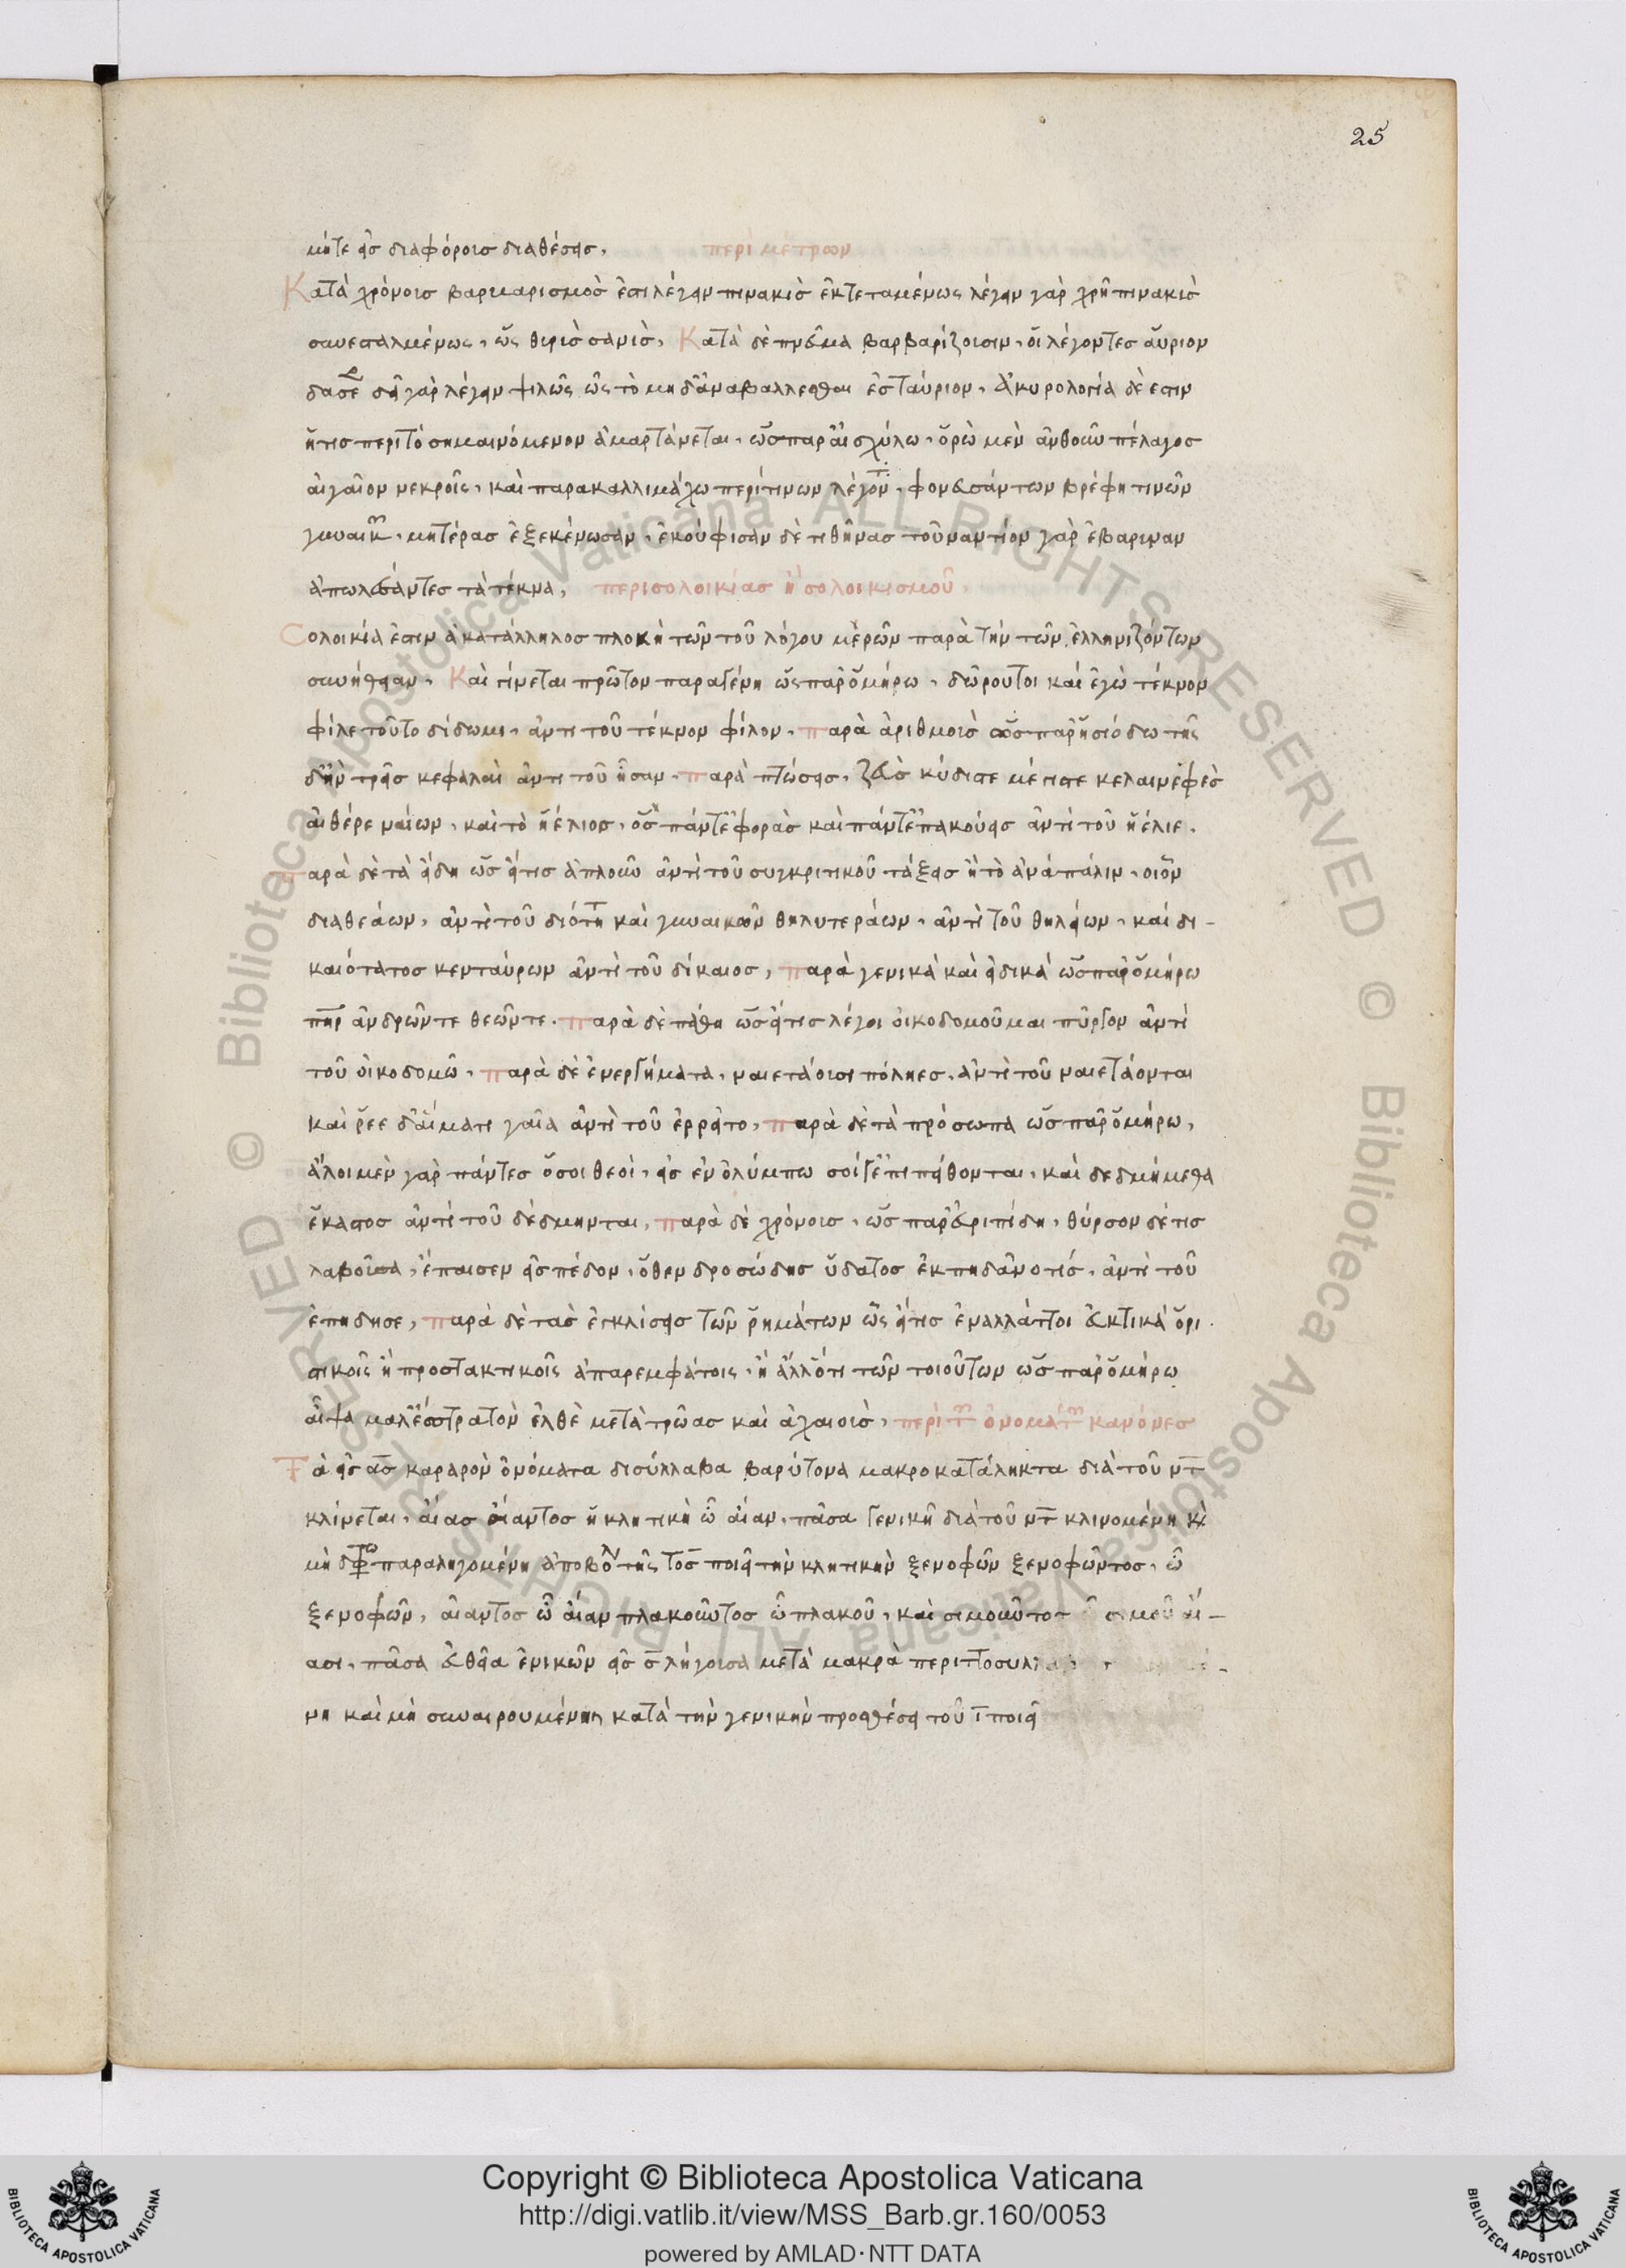 25
μήτε εἰσ διαφόροισ διαθέσεισ, περὶ μέτρων
Κατὰ χρόνοισ βαρβαρισμοσ ἐστι λέγειν πινακισ ἐκτεταμένως λέγειν γὰρ χρὴ πινακισ
συνεσταλμένως, ὡς θυρισ σανισ, Κατὰ δὲ πνεῦμα βαρβαρίζουσιν, οἱ λέγοντεσ αὔριον
δασέ δεῖ γὰρ λέγειν ψιλῶς ὡς τὸ μηδ' ἀναβάλλεσθαι ἐσταύριον, Ἀκυρολογία δὲ ἐστιν
ἥτισ περὶ τὸ σημαινόμενον ἁμαρτάνεται, ὡσ παρ' αἰσχύλω, ὁρῶ μὲν ἀνθοῦν πέλαγοσ
αἰγαῖον νεκροῖς, καὶ παρακαλλιμάχω περί τινων λέγον, φονευσάντων βρέφη τινῶν
γυναικ, μητέρασ ἐξεκένωσαν, ἐκούφισαν δὲ τιθήνασ τοὐναντίον γὰρ ἐβαρυναν
ἀπωλέσαντεσ τὰ τέκνα, περὶ σολοικίασ ἢ σολοικισμοῦ,
Σολοικία ἐστιν ἀκατάλληλοσ πλοκὴ τῶν τοῦ λόγου μερῶν παρὰ τὴν τῶν ἑλληνιζόντων
συνήθειαν, Καὶ γίνεται πρῶτον παραγένη ὡς παρ' ὁμήρω, δῶρον τοι καὶ ἐγὼ τέκνον
φίλε τοῦτο δίδωμι, ἀντι τοῦ τέκνον φίλον, παρὰ ἀριθμοισ ὡσ παρ' ἡσιόδω τῆς
δ' ἦν τρεῖσ κεφαλαὶ ἀντι τοῦ ἦσαν, παρὰ πτώσεισ, ζεῦσ κύδιστε μέγιστε κελαινεφὲσ
αἰθέρι ναίων, καὶ τὸ ἠέλιοσ, ὃσ πάντ' ἐφορᾶσ καὶ πάντ' ἐπακούεισ ἀντὶ τοῦ ἠέλιε,
παρὰ δὲ τὰ εἴδη ὡσ εἴτισ ἁπλοῦν ἀντὶ τοῦ συγκριτικοῦ τάξεισ ἢ τὸ ἀνάπάλιν, οἷον
διαθεάων, ἀντὶ τοῦ διότη καὶ γυναικῶν θηλυτεράων, ἀντὶ τοῦ θηλειων, καὶ δι-
καιότατοσ κενταύρων ἀντὶ τοῦ δίκαιοσ, παρὰ γενικὰ καὶ εἰδικὰ ὡσ παρ' ὁμήρω
πηρ ἀνδρῶντε θεῶντε, παρὰ δὲ πάθη ὡσ εἴτισ λέγοι οἰκοδομοῦμαι πύργον ἀντὶ
τοῦ οἰκοδομῶ, παρὰ δὲ ἐνεργήματα, ναιετάουσι πόληεσ, ἀντὶ τοῦ ναιετάονται
καὶ ῥέε δ' αἵματι γαῖα ἀντὶ τοῦ ἐρρεῖτο, παρὰ δὲ τὰ πρόσωπα ὡσ παρ' ὁμήρω,
ἄλοι μὲν γὰρ πάντεσ ὅσοι θεοί, εἰσ ἐν ὀλύμπω σοί γ' ἐπιπείθονται, καὶ δεδμήμεθα
ἕκαστοσ ἀντὶ τοῦ δέδμηνται, παρὰ δὲ χρόνοισ, ὡσ παρ' εὐριπίδη, θύρσον δέ τισ
λαβοῦσα, ἔπαισεν εἰσ πέδον, ὅθεν δροσώδησ ὕδατοσ ἐκπηδᾶν οτισ, ἀντὶ τοῦ
ἐπηδησε, παρὰ δὲ τασ ἐγκλίσεισ τῶν ῥημάτων ὡς εἴτισ ἐναλλάττοι εὐκτικὰ ὁρι-
στικοῖς ἢ προστακτικοῖς ἀπαρεμφάτοις, ἢ ἀλλ' ὅτι τῶν τοιούτων ὡσ παρ' ὁμήρω
αἶψα μαλ' ἐσ στρατὸν ἐλθὲ μετὰ τρῶασ καὶ ἀχαιοισ, περὶ τῶν ὀνομάτων κανόνεσ
Τὰ εἰσ ασ καραρον ὀνόματα δισύλλαβα βαρύτονα μακροκατάληκτα διὰ τοῦ ντ
κλίνεται, αἴασ αἴαντοσ ἡ κλητικὴ ὦ αἶαν, πᾶσα γενικὴ διὰ τοῦ ντ κλινομένη κὲ
μὴ παραληγομένη ἀποβολ τῆς τοσ ποιεῖ τὴν κλητικὴν ξενοφῶν ξενοφῶντοσ, ὦ
ξενοφῶν, αἴαντοσ ὦ αἶαν πλακοῦντοσ ὦ πλακοῦ, καὶ σιμοῦντοσ ὦ σιμοῦ αἴ-
ασι, πᾶσα εὐθεῖα ἑνικῶν εἰσ σ λήγουσα μετὰ μακρὰ περιττοσυλ
νη καὶ μὴ συναιρουμένησ κατὰ τὴν γενικὴν προσθέσει τοῦ ι ποιεῖ
© Biblioteca Apostolica Vaticana ALL RIGHTS RESERVED © Biblioteca Apostolica Vaticana ALL RIGHTS RESERVED
Copyright © Biblioteca Apostolica Vaticana
http://digi.vatlib.it/view/MSS_Barb.gr.160/0053
powered by AMLAD·NTT DATA
BIBLIOTECA APOSTOLICA VATICANA
BIBLIOTECA APOSTOLICA VATICANA